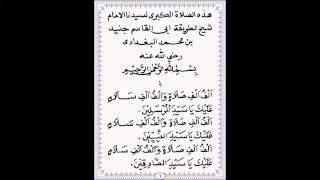 هذه الصلاة الكبرى لسيدنا الامام
شيخ الطريقة ابى القاسم جنيد
بن محمد البغدادى
رضى الله عنه
بِسْمِ اللهِ الرَّحْمٰنِ الرَّحِيْمِ
اَلْفُ اَلْفِ صَلَاةٍ وَاَلْفُ اَلْفِ سَلَامٍ
عَلَيْكَ يَا سَيِّدَ الْمُرْسَلِيْنَ.
اَلْفُ اَلْفِ صَلَاةٍ وَاَلْفُ اَلْفِ سَلَامٍ
عَلَيْكَ يَا سَيِّدَ النَّبِيِّيْنَ.
اَلْفُ اَلْفِ صَلَاةٍ وَاَلْفُ اَلْفِ سَلَامٍ
عَلَيْكَ يَا سَيِّدَ الصَّادِقِيْنَ.